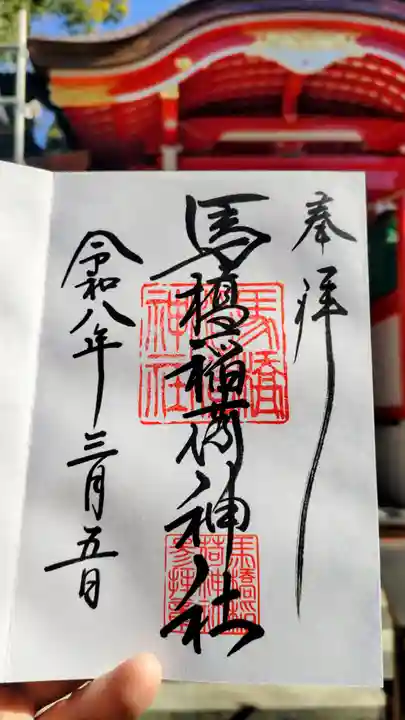 奉拝
馬橋稲荷神社
令和八年三月五日
馬橋
稲荷
神社
馬橋稲
荷神社
参拝章